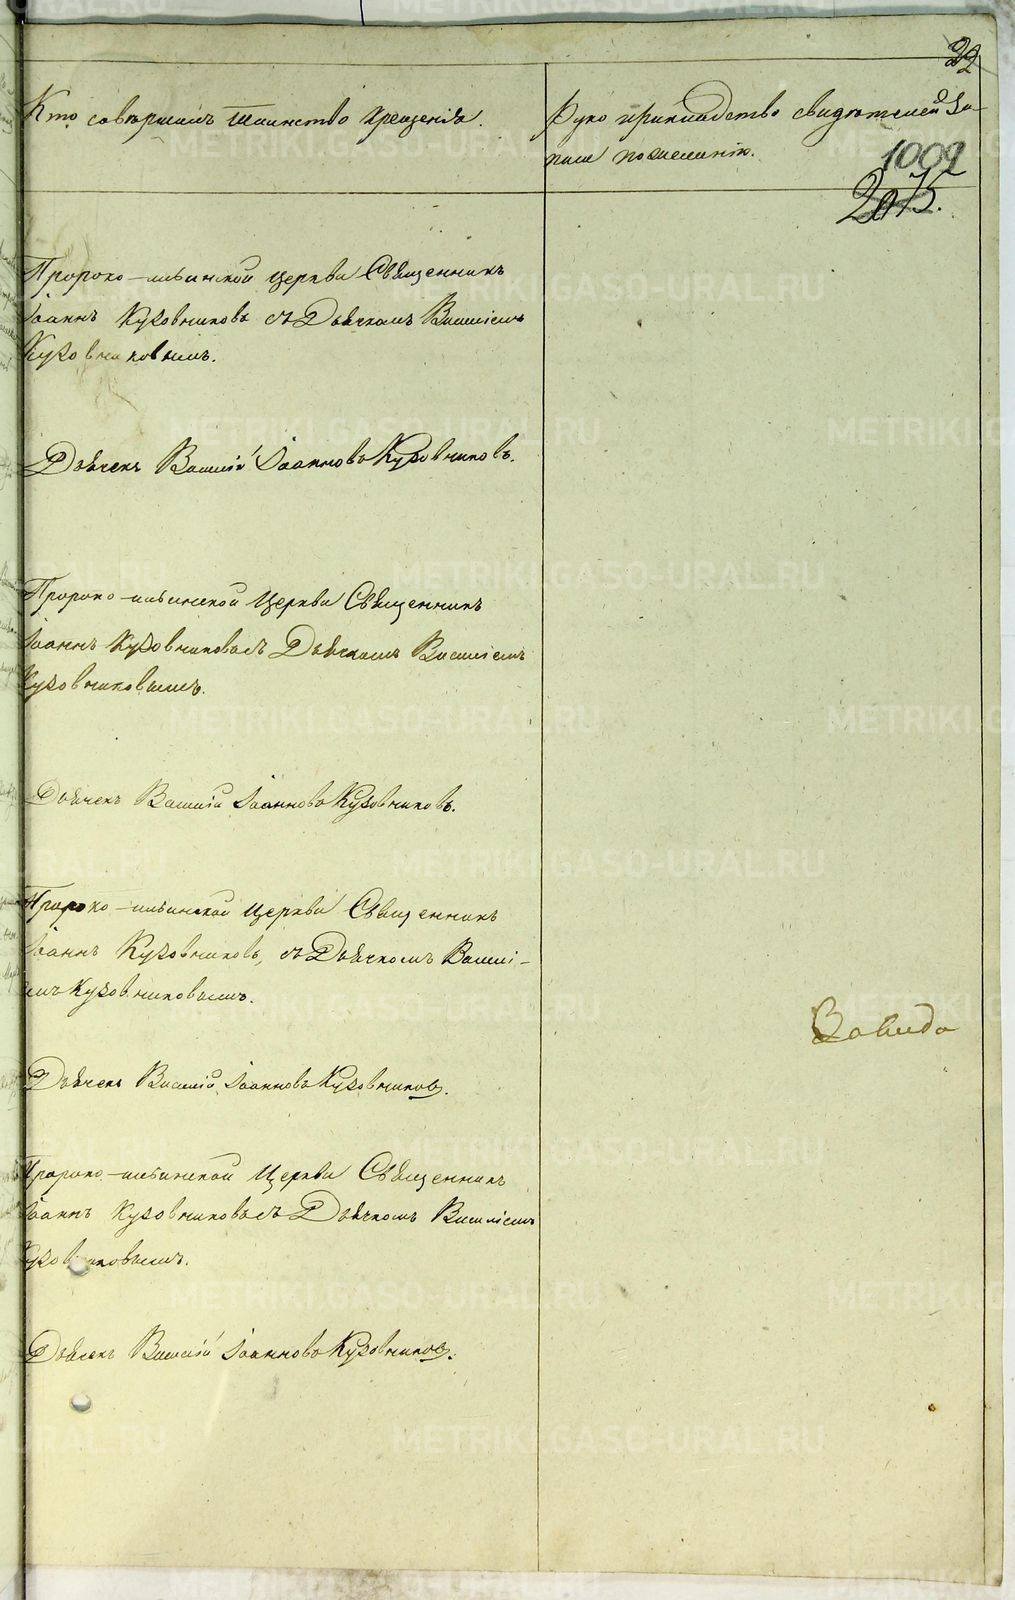 22
Кто совершалъ таинство крещенія.
Руко прикладство свидѣтелей за-
писи по желанію.
1009
2075.
Пророко-ильинской церкви Священникъ
Іоаннъ Кузовниковъ съ Дьячкомъ Василіемъ
Кузовниковымъ.
Дьячекъ Василій Іоанновъ Кузовниковъ.
Пророко-ильинской Церкви Священникъ
Іоаннъ Кузовниковъ съ Дьячкомъ Василіемъ
Кузовниковымъ.
Дьячекъ Василій Іоанновъ Кузовниковъ.
Пророко-ильинской Церкви Священникъ
Іоаннъ Кузовниковъ, съ Дьячкомъ Василі-
емъ Кузовниковымъ.
Дьячекъ Василій Іоанновъ Кузовников.
Пророко-ильинской Церкви Священникъ
Іоаннъ Кузовниковъ съ Дьячкомъ Василіемъ
Кузовниковымъ.
Дьячекъ Василій Іоанновъ Кузовников.
METRIKI.GASO-URAL.RU